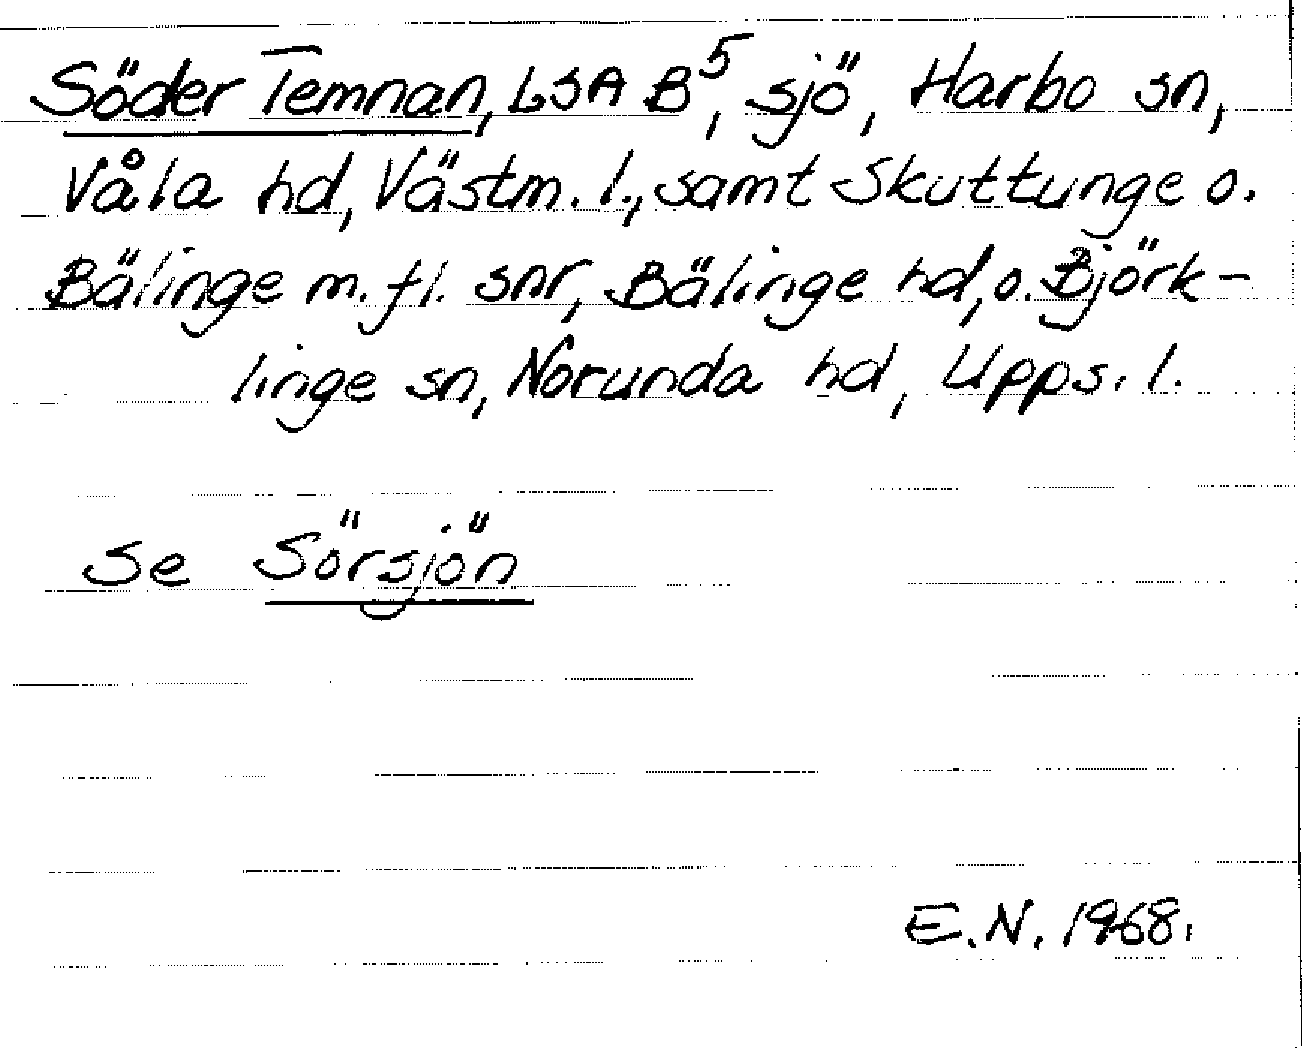 Söder Temnan, LSA B⁵, sjö, Harbo sn,
Våla hd, Västm. l., samt Skuttunge o.
Bälinge m. fl. snr, Bälinge hd, o. Björk-
linge sn, Norunda hd, Upps. l.
se Sörsjön
E.N. 1968.